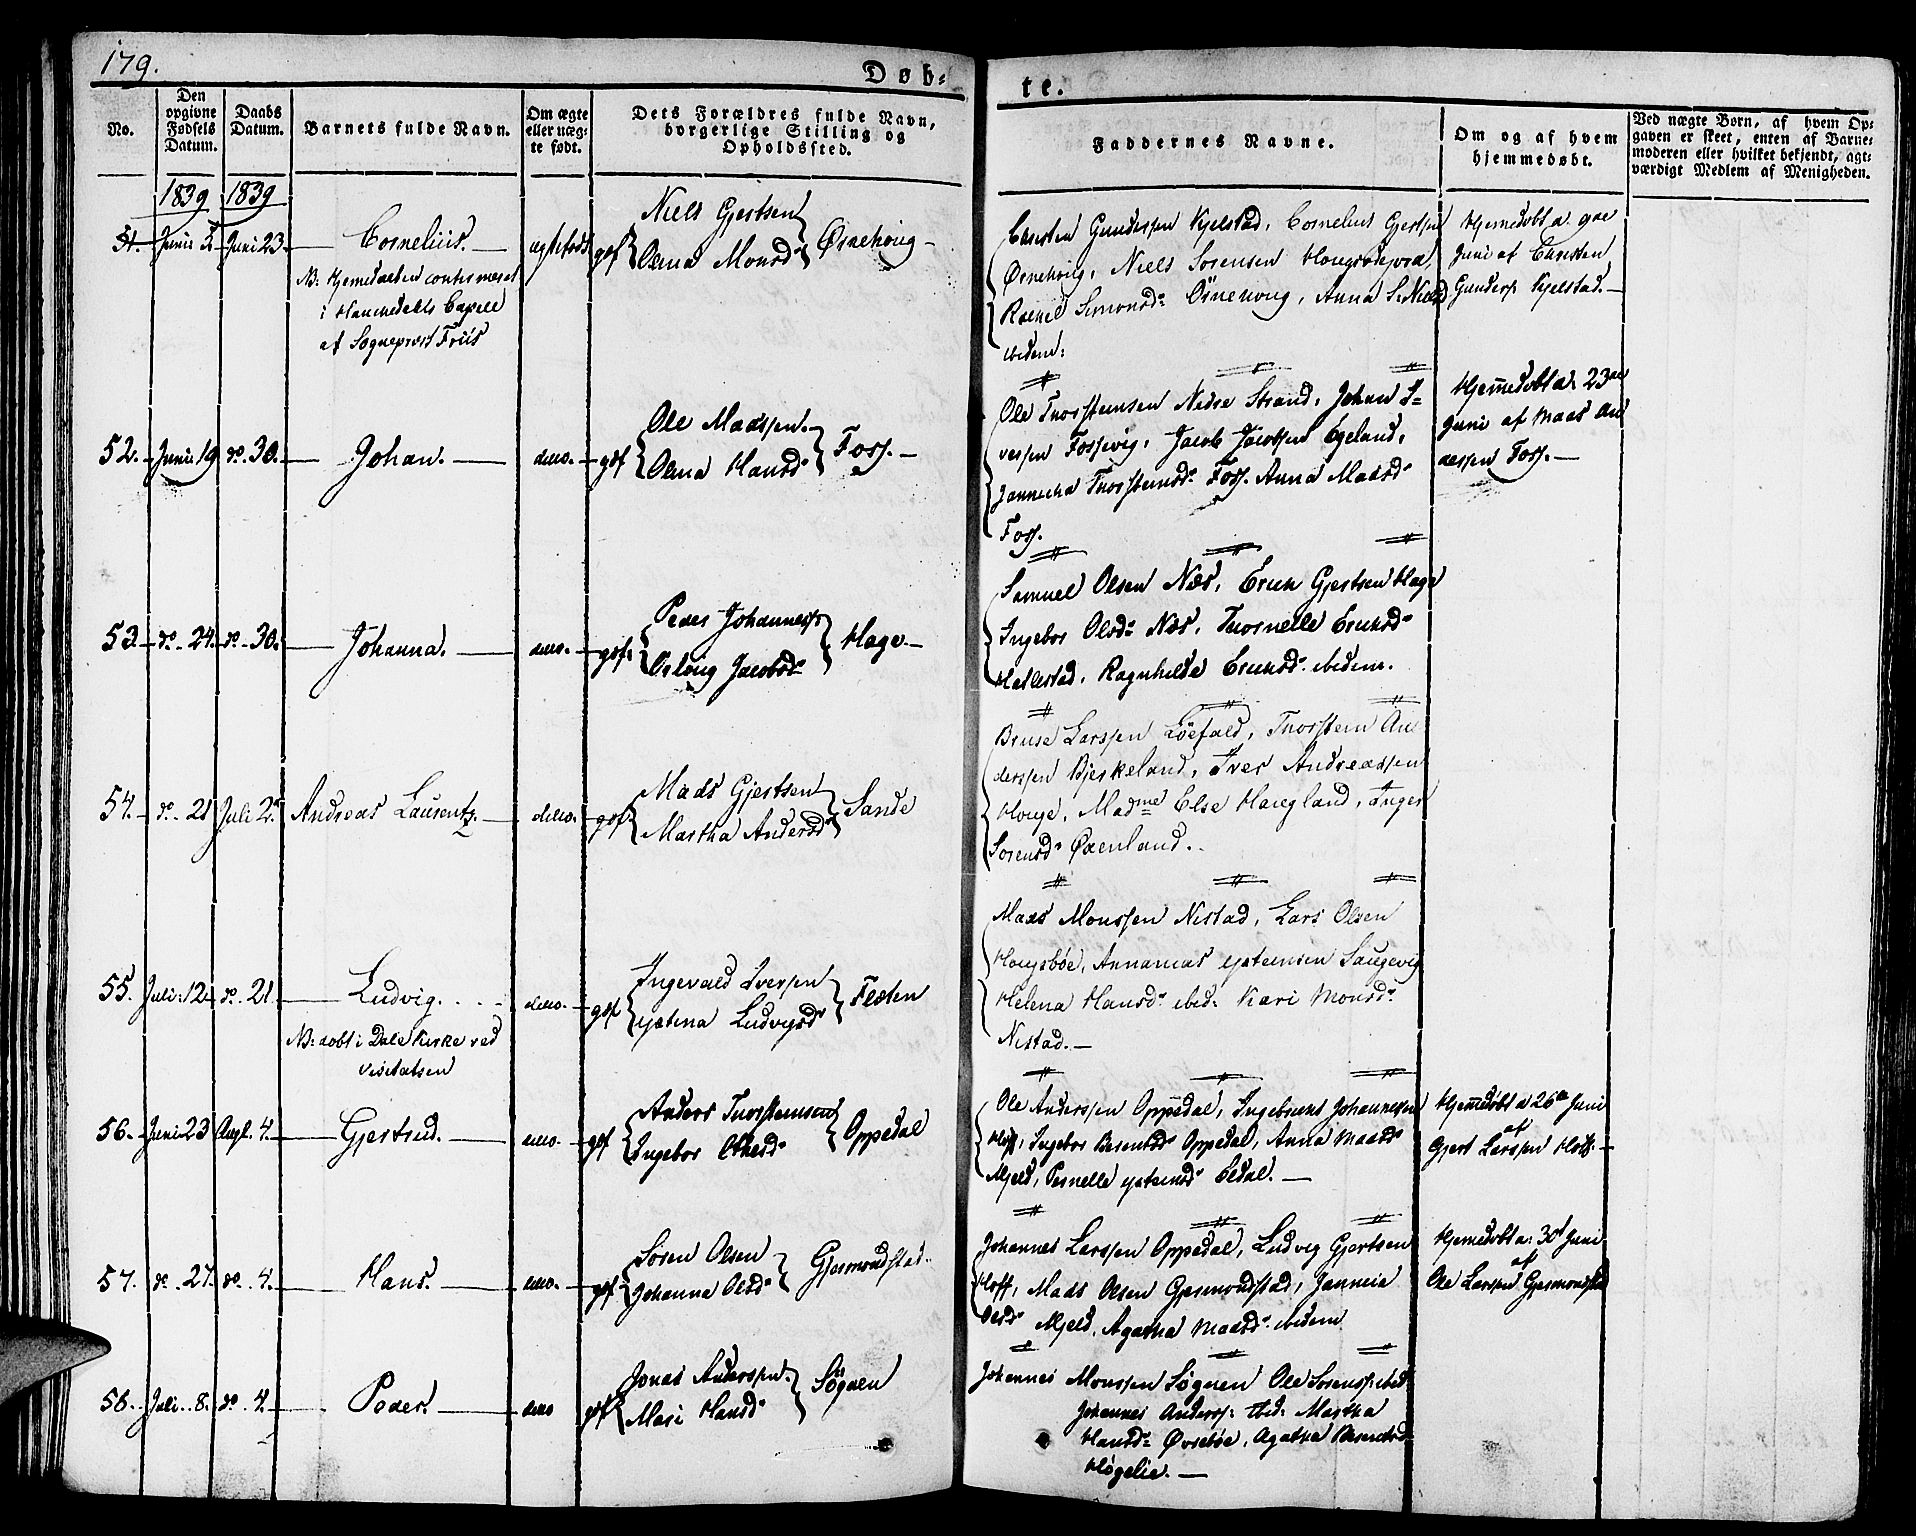 179.
Døb-
te.
No.
Den opgivne Fødsels Datum.
Daabs Datum.
Barnets fulde Navn.
Om ægte eller næg- te født.
Dets Forældres fulde Navn, borgerlige Stilling og Opholdssted.
Faddernes Navne.
Om og af hvem hjemmedøbt.
Ved nægte Børn, af hvem Op- gaven er skeet, enten af Barne- moderen eller hvilket bekjendt, agt- værdigt Medlem af Menigheden.
1839 1839
51. Junii 2 Juni 23. Cornelius. ægtefødt gdf Niels Gjertsen
Olina Monsd Ørnehoug
NB: Hjemedaaben
Capell
af Sognepræst Friis
Christen Gundersen Kjelstad, Cornelius Gjertsen
Ørnehoug, Niels Sørensen
Rachel Simonsd: Ørnehoug, Anna S. Nielsd
ibidem:
Hjemedøbt d. 9de
Juni af Christen
Gunders: Kjelstad.
52. Junii 19 do. 30. Johan. dito. gdf Ole Madssen.
Olina Hansd Foss.
Ole Thorsteinsen Nedre Strand, Johan S-
verssen Fossevig, Jacob Jacobsen Egeland,
Jannicka Thorsteinsd: Foss. Anna Madsd:
Foss.
Hjemmedøbt d: 23de
Juni af Mads An
derssen Foss.
53. do. 24. do. 30. Johanna. dito. gdf: Peder Johanness:
Oslaug Jacobsd Hage.
Samuel Olsen Næs, Erich Gjertsen Hage
Ingebor Olsd: Næs, Thornelle Erichsd:
Hatlestad, Ragnhilde Erichsd: ibidem.
54. do. 21 Juli 2. Andreas Laurentz. dito. gdf. Mads Gjertsen
Martha Andersd Sande
Bruse Larssen Løefald, Thorstein An
derssen Bjerkeland, Iver Andreassen
Houge, Madme Else Haugland, Inger
Sørensd: Øxenland.
55. Juli. 12. do. 21. Ludvig. dito. gdf Ingevald Iverssen
Ystina Ludvigsd Flesten
NB: døbt i Dale Kirke ved
visitatsen
Mads Monssen Nistad, Lars Olsen
Hougsbøe, Annanias Ysteinsen Saugevig
Helena Hansd: ibid: Kari Monsd:
Nistad.
56. Juni 23 Augt. 4. Gjertrud. dito gdf Anders Thorsteinsen
Ingebor Oppedal
Ole Anderssen Oppedal, Ingebricht Johannesen
Hoff, Ingebor Oppedal, Anna Madsd:
Mjeld, Pernelle Ysteinsd Eldal.
Hjemmedøbt d 26de Juni
af
Gjert Larssen Hoff.
57. do. 27. do. 4. Hans. dito. gdf: Søren Olsen
Johanna Olsd Gjesmondstad.
Johannes Larssen Oppedal, Ludvig Gjertsen
Hoff, Mads Olsen Gjesmondstad, Jannicke
Olsd Mjeld, Agatha Madsd: ibidem
Hjemedøbt d: 30t Juni
af
Ole Larssen Gjesmondstad
58. Juli. 8. do. 4. Peder. dito gdf Jonas Anderssen.
Mari Hansd Søgnen
Johannes Monssen Søgnen Ole Sørenss: ibid:
Johannes Anderss: ibid: Martha
Hansd: Øvrebøe, Agatha
Høgelie.